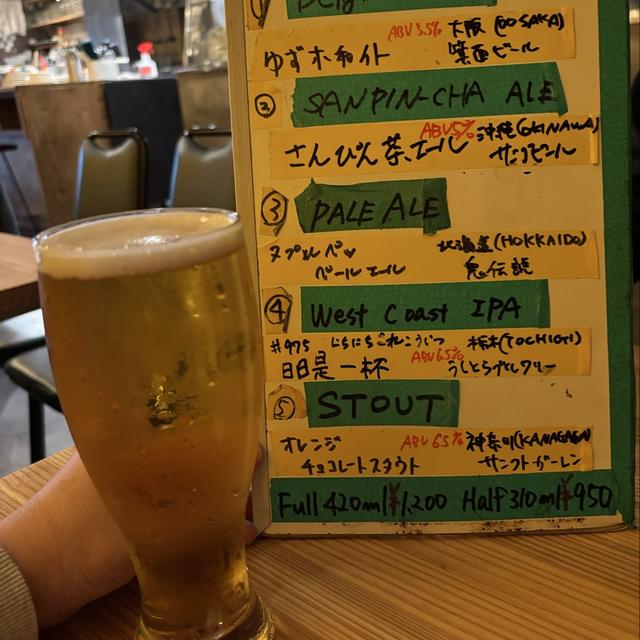 ① Belg
ゆずホワイト ABV 5.5% 大阪 (OOSAKA)
箕面ビール
② SANPIN-CHA ALE
さんぴん茶エール ABV5% 沖縄(OKINAWA)
サンゴビール
③ PALE ALE
ダブルペッ 北海道(HOKKAIDO)
ペールエール 鬼伝説
④ West Coast IPA
#975 にちにちこれこういつ 栃木(TOCHIGI)
日日是一杯 ABV6.5% うしとらブルワリー
⑤ STOUT
オレンジ ABV 6.5% 神奈川(KANAGAWA
チョコレートスタウト サンクトガーレン
Full 420ml ¥1,200 Half 310ml ¥950